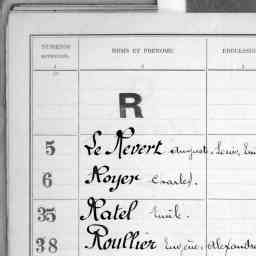 NUMÉROS NOMS ET PRÉNOMS PROFESSION
R
5 Le Nevert Auguste, Louis, Em
6 Royer Charles.
35 Ratel Emile.
38 Roullier Eugène, Alexandre